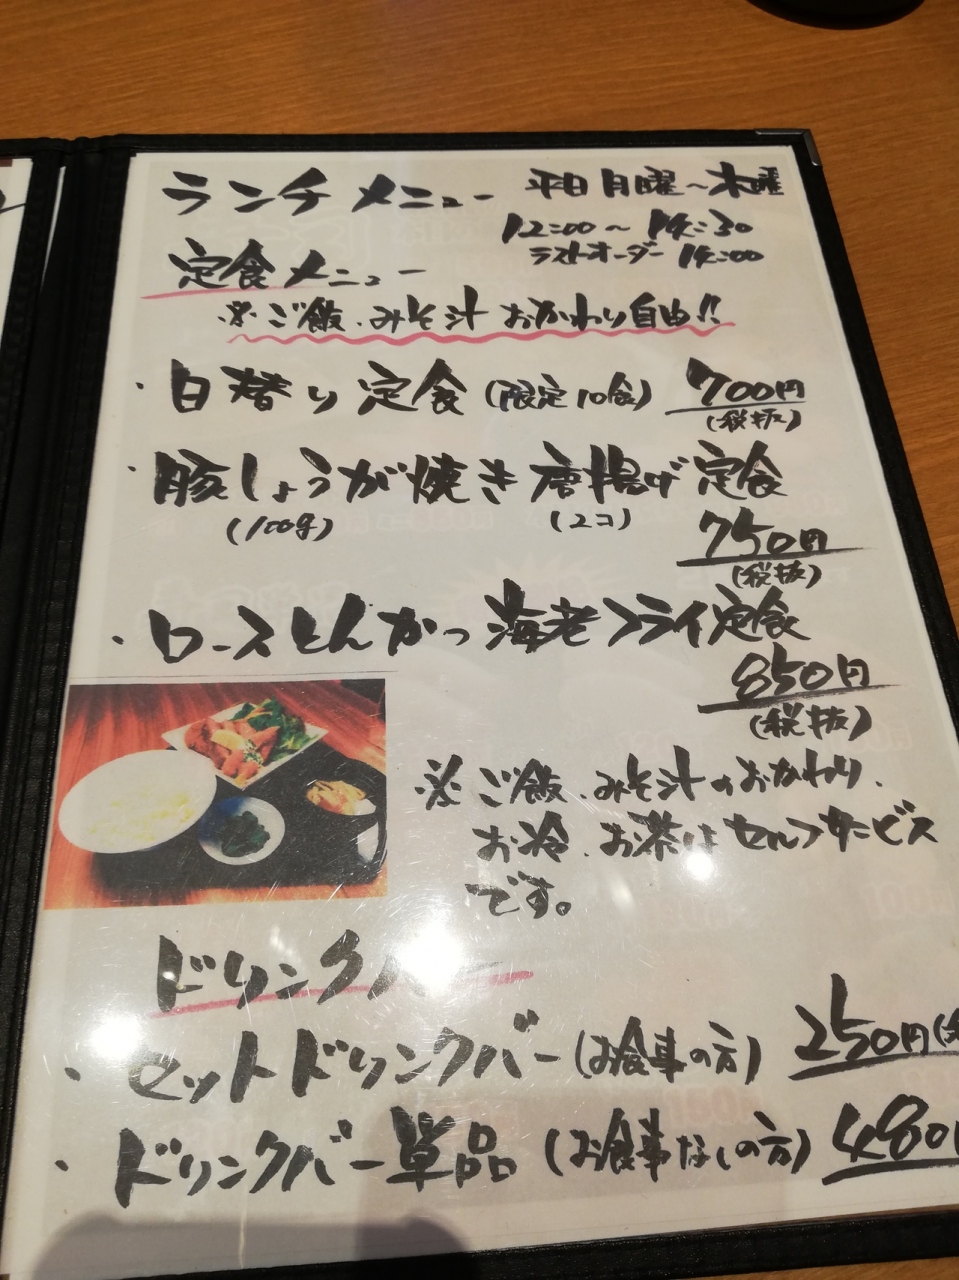 ランチメニュー 平日 月曜～木曜
12:00～14:30
ラストオーダー 14:00
定食メニュー
※ご飯、みそ汁 おかわり自由!!
・日替り定食(限定10食) 700円
(税抜)
・豚しょうが焼き 唐揚げ定食
(100g) (2コ)
750円
(税抜)
・ロースとんかつ海老フライ定食
850円
(税抜)
※ご飯、みそ汁のおかわり、
お冷、お茶はセルフサービス
です。
ドリンクバー
・セットドリンクバー(お食事の方) 250円(
・ドリンクバー単品(お食事なしの方) 480